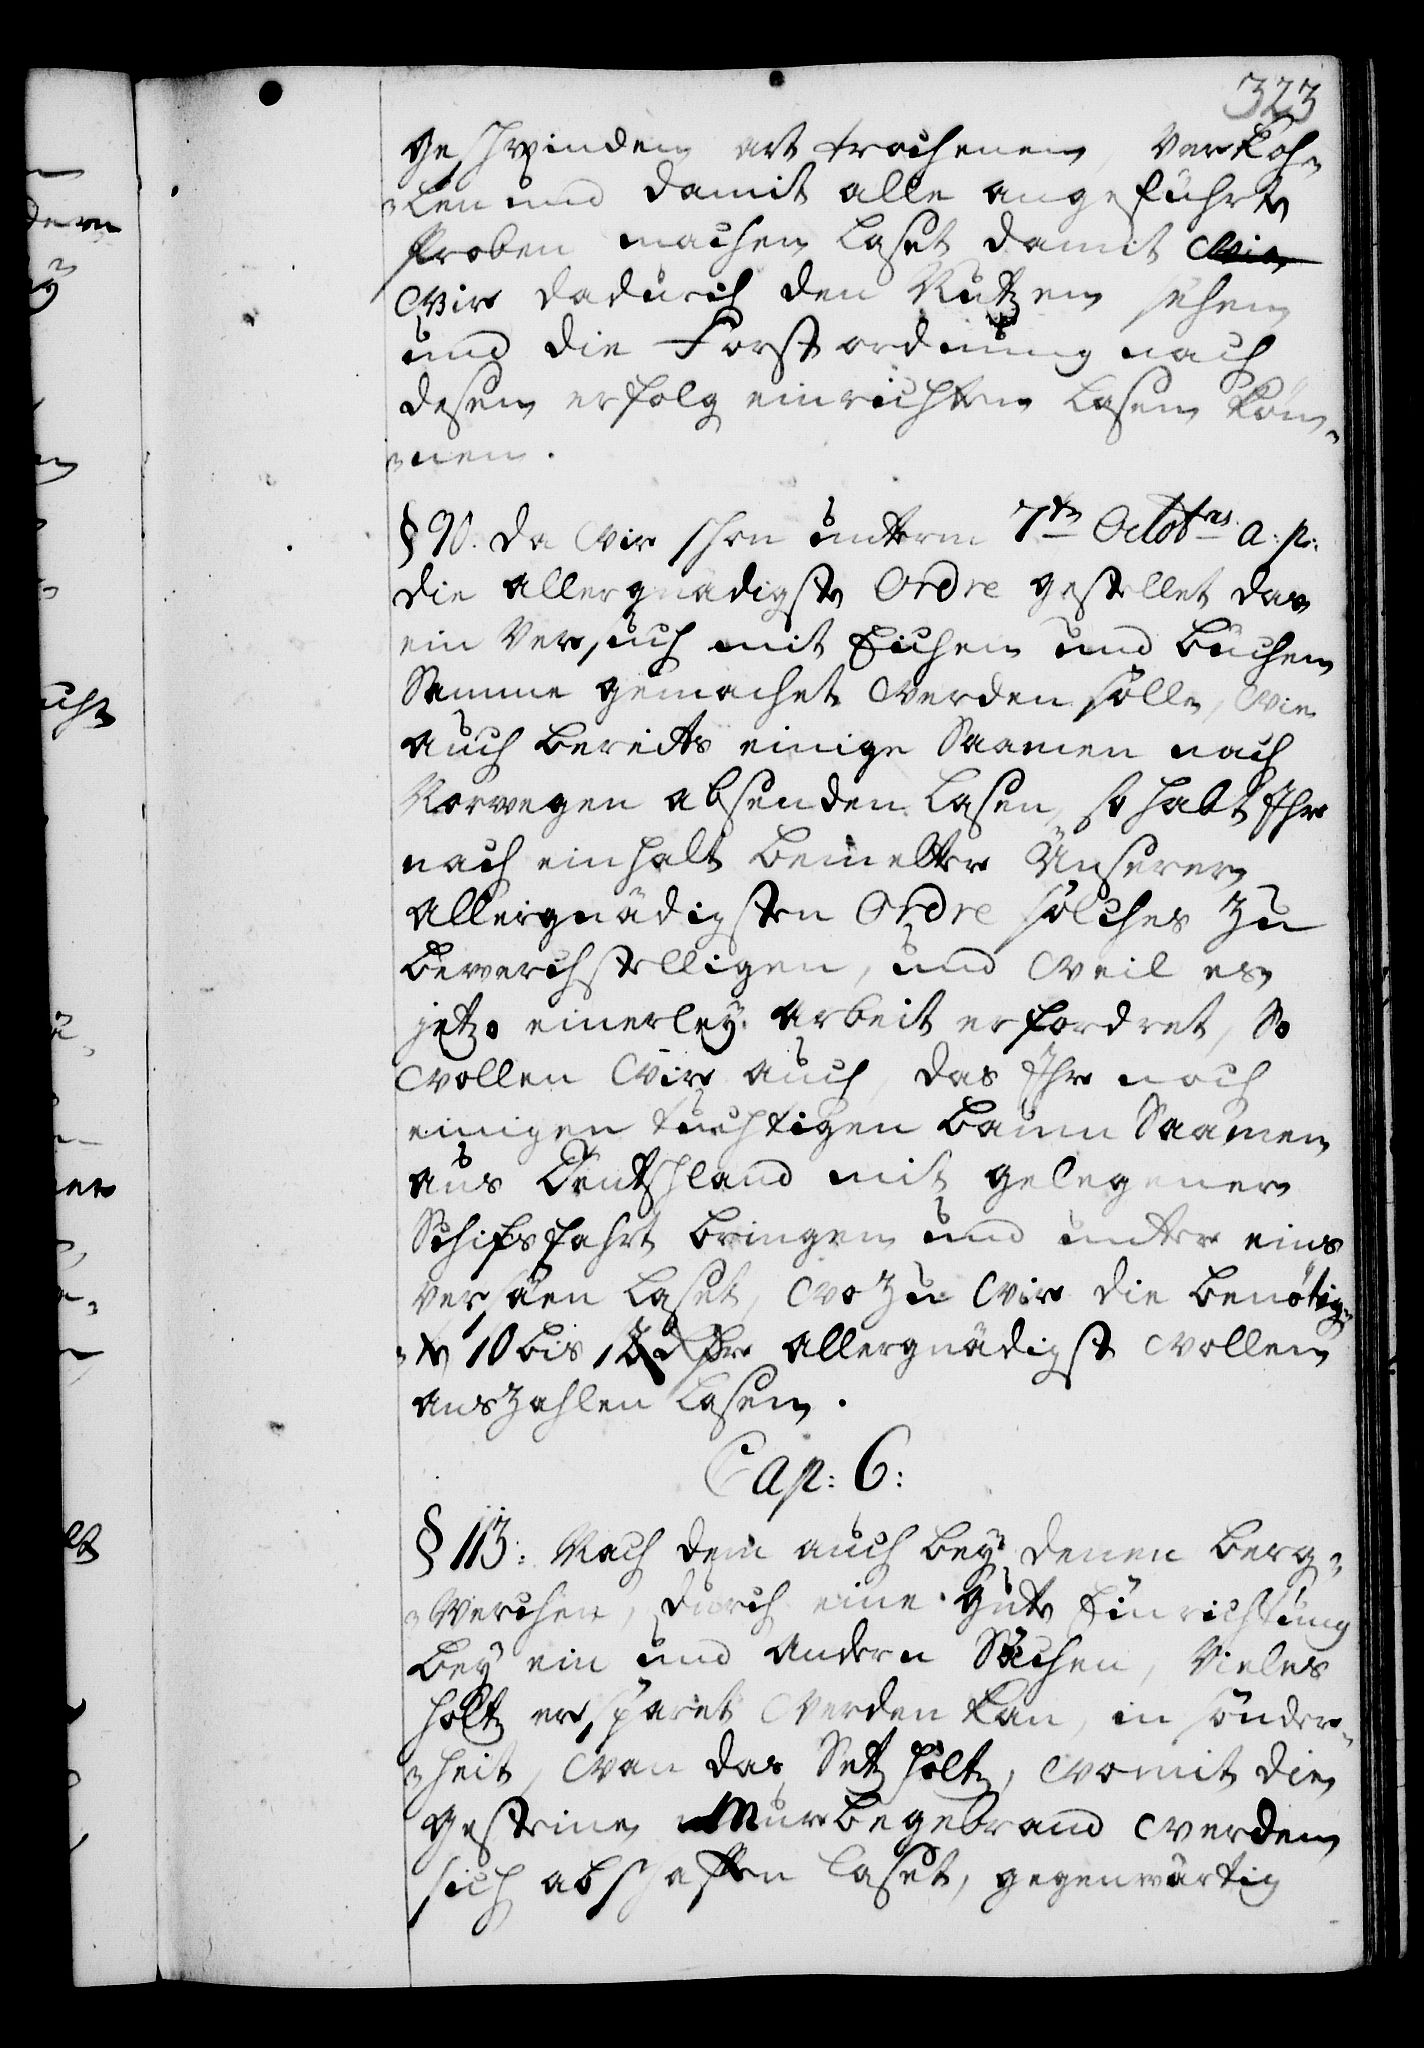 323
geschwinden art trochenen, Verkoh-
-len und damit alle angeführte
Proben machen laset damit wir
wir dadurch den Nutzen sehen
und die Forstordnung nach
desen erfolg einrichten lasen kön-
-nen.
§ 90. da wir schon unterm 7ten Octobris a: p:
die allergnädigste Ordre gestellet das
ein Versuch mit Eichen und Büchen
Samme gemachet werden solle, wie
auch bereits einige Saamen nach
Norwegen absenden lasen, so habt Ihr
nach einhalt bemelter Unserer
allergnädigsten Ordre solches zu
bewerchstelligen, und weil es
jetzo einerley arbeit erfordret, So
wollen wir auch, das Ihr noch
einigen tüchtigen baum Saamen
aus Deutschland mit gelegener
Schifsfahrt bringen und unter eins
versäen laset, wozu wir die benötig-
-te 10 bis 12 allergnädigst wollen
auszahlen lasen.
Cap: 6:
§ 113: Nach dem auch bey denen berg-
-werchen, durch eine gute Einrichtung
bey ein und andern Sachen, Vieles
holtz ersparet werden kan, in sonder-
-heit, wan das Setz holtz, womit die
gesteine Murbegebrand werden
sich abschaffen laset, gegenwärtig